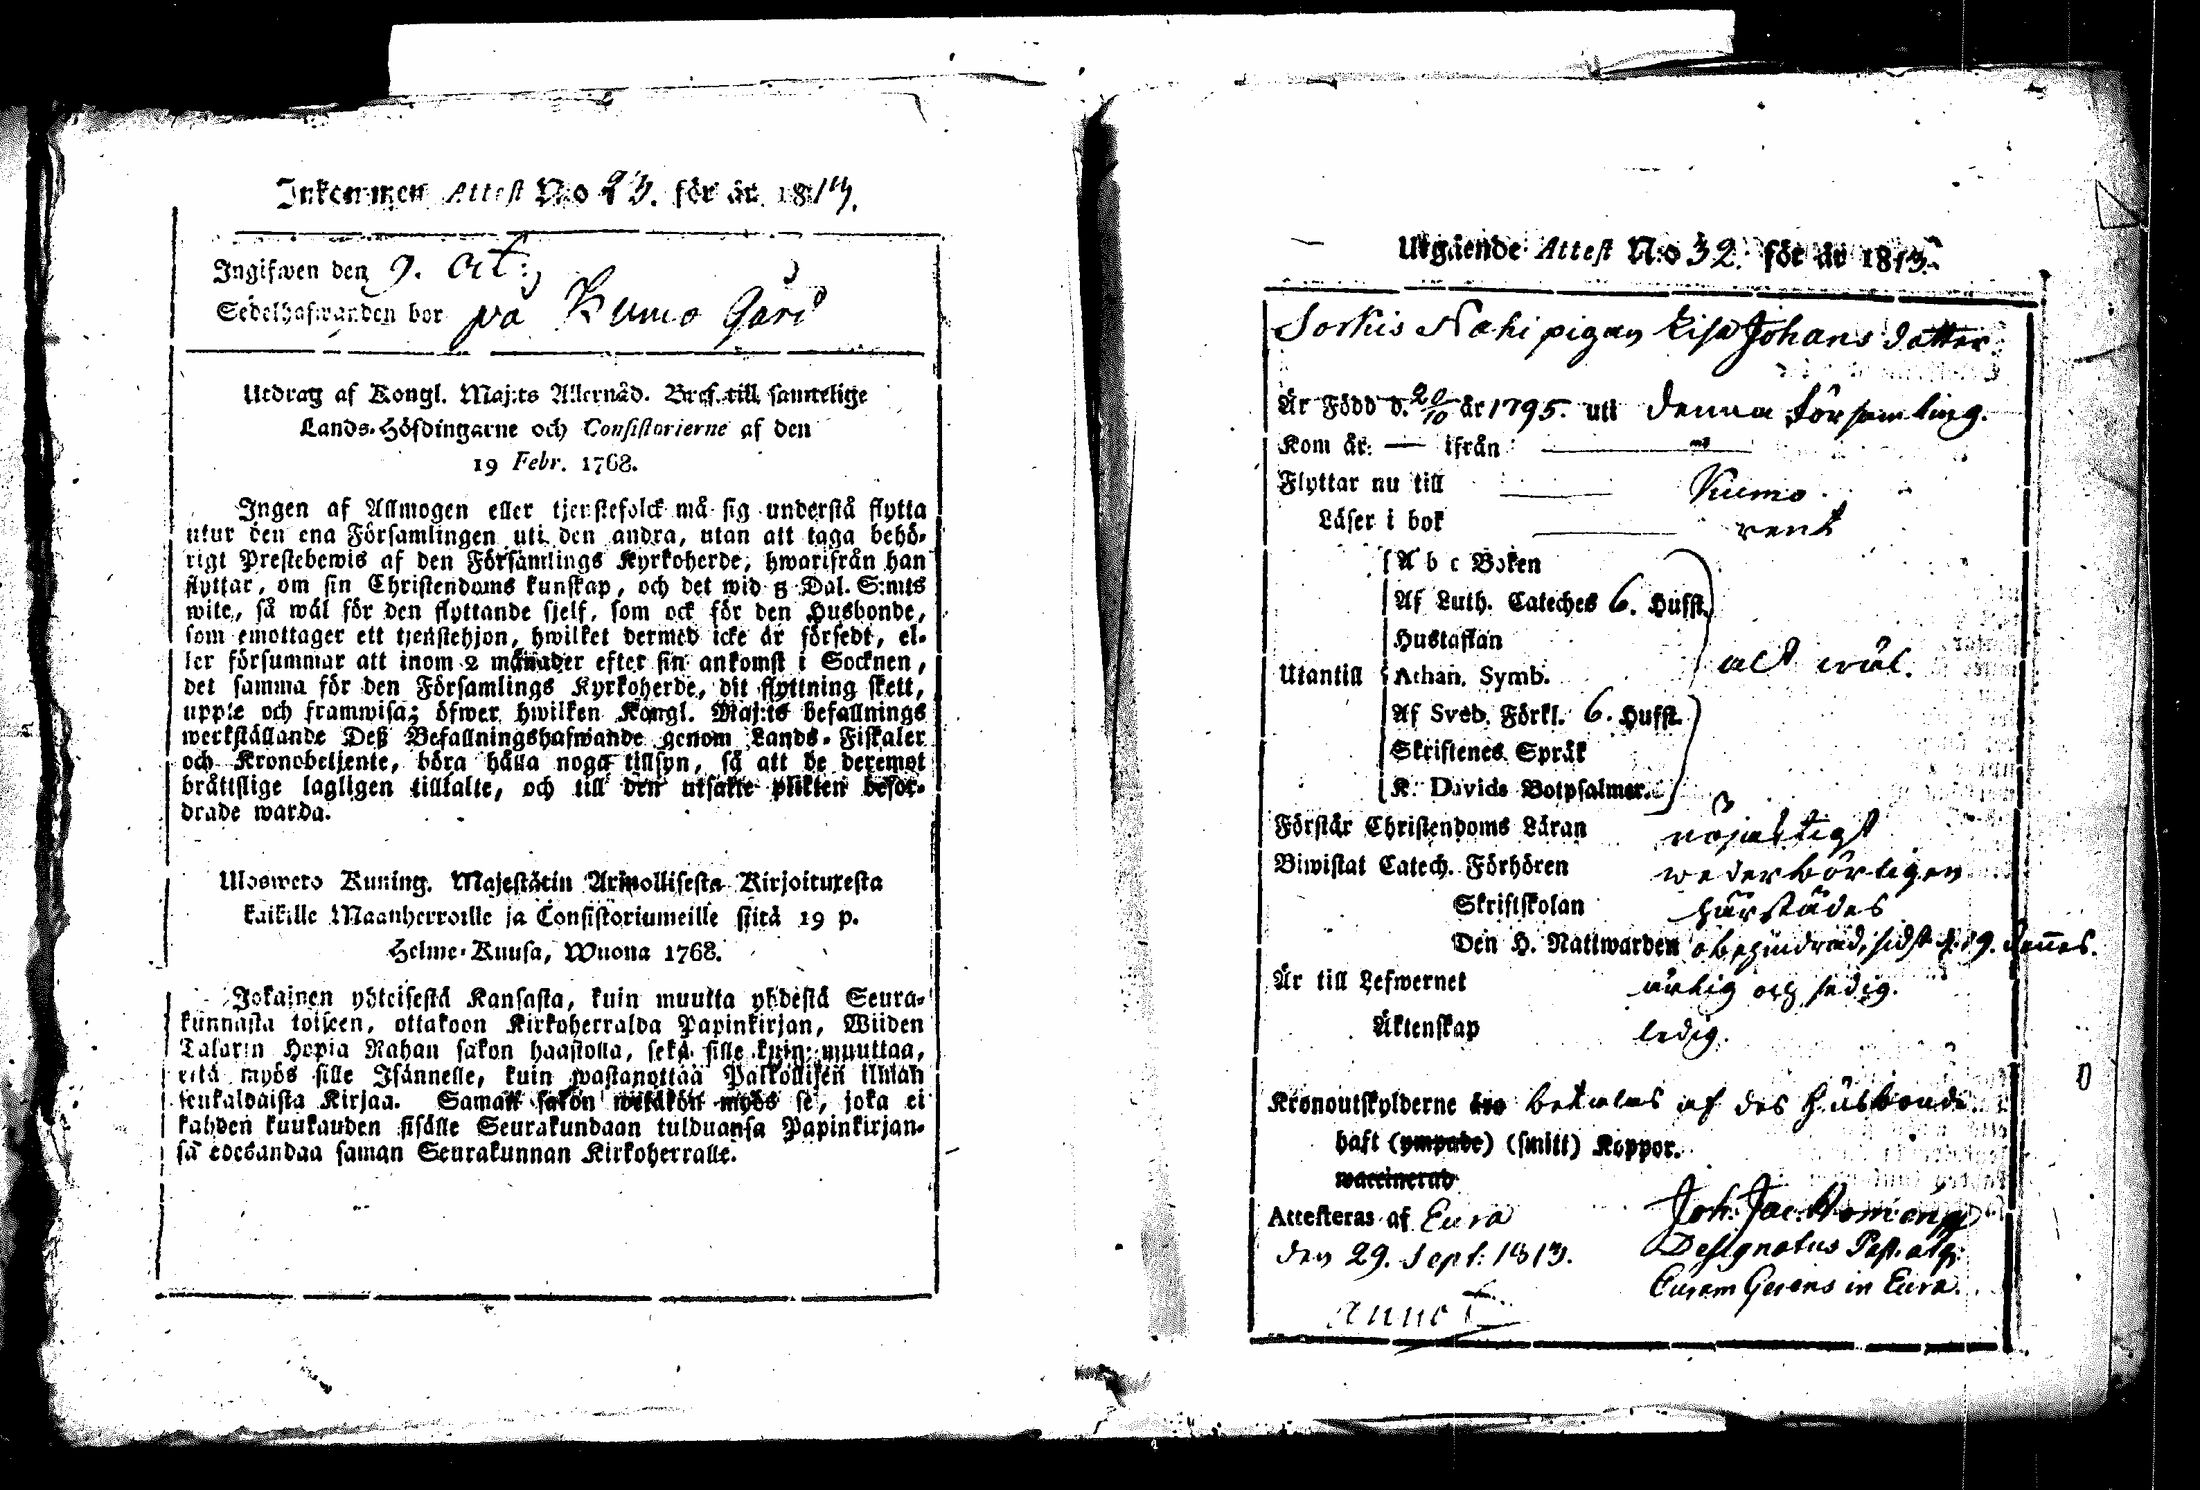 Inkommen Attest N:o 23. för år 1813.
Ingifwen den 9. Oct:
Sedelhafwanden bor på Kumo Gård
Utdrag af Kongl. Maj:ts Allernåd. Bref till samtelige
Lands-Höfdingarne och Consistorierne af den
19 Febr. 1768.
Ingen af Allmogen eller tjenstefolck må sig understå flytta
utur den ena Församlingen uti den andra, utan att taga behö-
rigt Prestebewis af den Församlings Kyrkoherde, hwarifrån han
flyttar, om sin Christendoms kunskap, och det wid 5 Dal. S:mts
wite, så wäl för den flyttande sjelf, som ock för den Husbonde,
som emottager ett tjenstehjon, hwilket dermed icke är försedt, el-
ler försummar att inom 2 månader efter sin ankomst i Socknen,
det samma för den Församlings Kyrkoherde, dit flyttning skett,
uppte och framwisa; öfwer hwilken Kongl. Maj:ts befallnings
werkställande Deß Befallningshafwande genom Lands-Fiskaler
och Kronobetjente, böra hålla noga tillsyn, så att de deremot
bråttslige lagligen tilltalte, och till den utsatte plikten befor-
drade warda.
Ulosweto Kuning. Majestätin Armollisesta Kirjoituxesta
kaikille Maanherroille ja Consistoriumeille siitä 19 p.
Helme-Kuusa, Wuona 1768.
Jokainen yhteisestä Kansasta, kuin muutta yhdestä Seura-
kunnasta toiseen, ottakoon Kirkoherralda Papinkirjan, Wiiden
Talarin Hopia Rahan sakon haastolla, sekä sille kuin muuttaa,
että myös sille Isännelle, kuin wastanottaa Palkollisen ilman
senkaldaista Kirjaa. Saman sakon wetäkön myös se, joka ei
kahden kuukauden sisälle Seurakundaan tulduansa Papinkirjan-
sa edesandaa saman Seurakunnan Kirkoherralle.
Utgående Attest N:o 32. för år 1813.
Sorkis Nahi pigan Lisa Johans dotter
Är Född d. 20/10 år 1795. uti denna församling.
Kom år: — ifrån
Flyttar nu till Kumo
Läser i bok rent
A b c Boken
Af Luth. Cateches 6. Hufst.
Hustaflan
Utantill Athan. Symb. alt wäl.
Af Sveb. Förkl. 6. Hufst.
Skriftenes Språk
K. Davids Botpsalmer.
Förstår Christendoms Läran nöjaktigt
Biwistat Catech. Förhören wederbörligen
Skriftskolan härstädes
Den H. Nattwarden obehindrad, sidst d. 19. dennes.
Är till Lefwernet ärlig och sedig.
Äktenskap ledig.
Kronoutskylderne äro betalas af des Husbonde
haft (ympade) (smitt) Koppor.
waccinerad
Attesteras af Eura
den 29. Sept: 1813.
Joh: Jac:
Designatus Past. atq:
Curam Gerens in Eura.